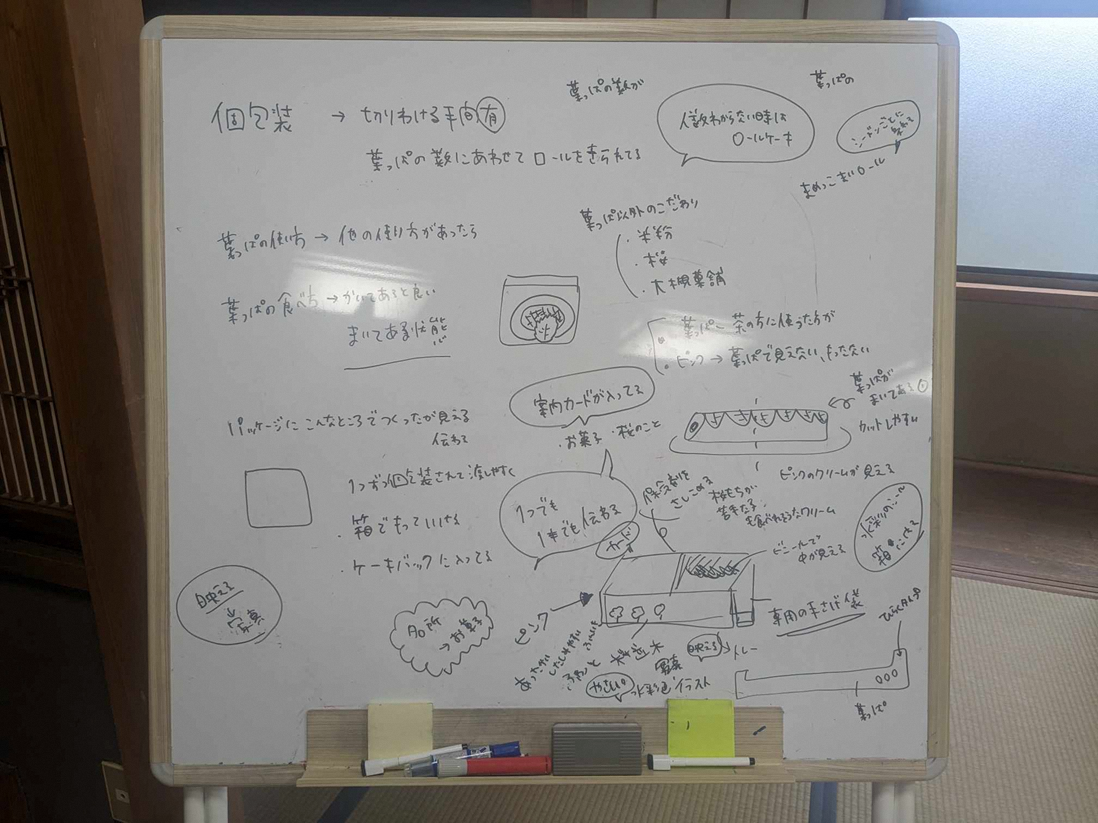 個包装 → 切りわける手間有
葉っぱの数が
人数わからない時は
ロールケーキ
葉っぱの
シーズンごとに
葉っぱの数にあわせてロールをきられてる
まめっこまいロール
葉っぱの使い方 → 他の使い方があったら
葉っぱ以外のこだわり
・米粉
・桜
・大槻菓舗
葉っぱの食べ方 → かいてあると良い
まいてある状態
・葉っぱ → 茶の方に使った方が
・ピンク → 葉っぱで見えない、もったない
案内カードが入ってる
・お菓子 ・桜のこと
葉っぱが
まいてある
カットしやすい
パッケージにこんなところでつくったが見える
伝わる
ピンクのクリームが見える
1つずつ個包装されて渡しやすく
・箱でもっていける
・ケーキバックに入ってる
1つでも
1本でも伝わる
桜もちが
苦手な子
も食べれそうなクリーム
カード
ビニールで
中が見える
映える
↓
写真
名所
→ お菓子
ピンク
専用の手さげ袋
映える
トレー
写真
やさしい
水彩色イラスト
葉っぱ